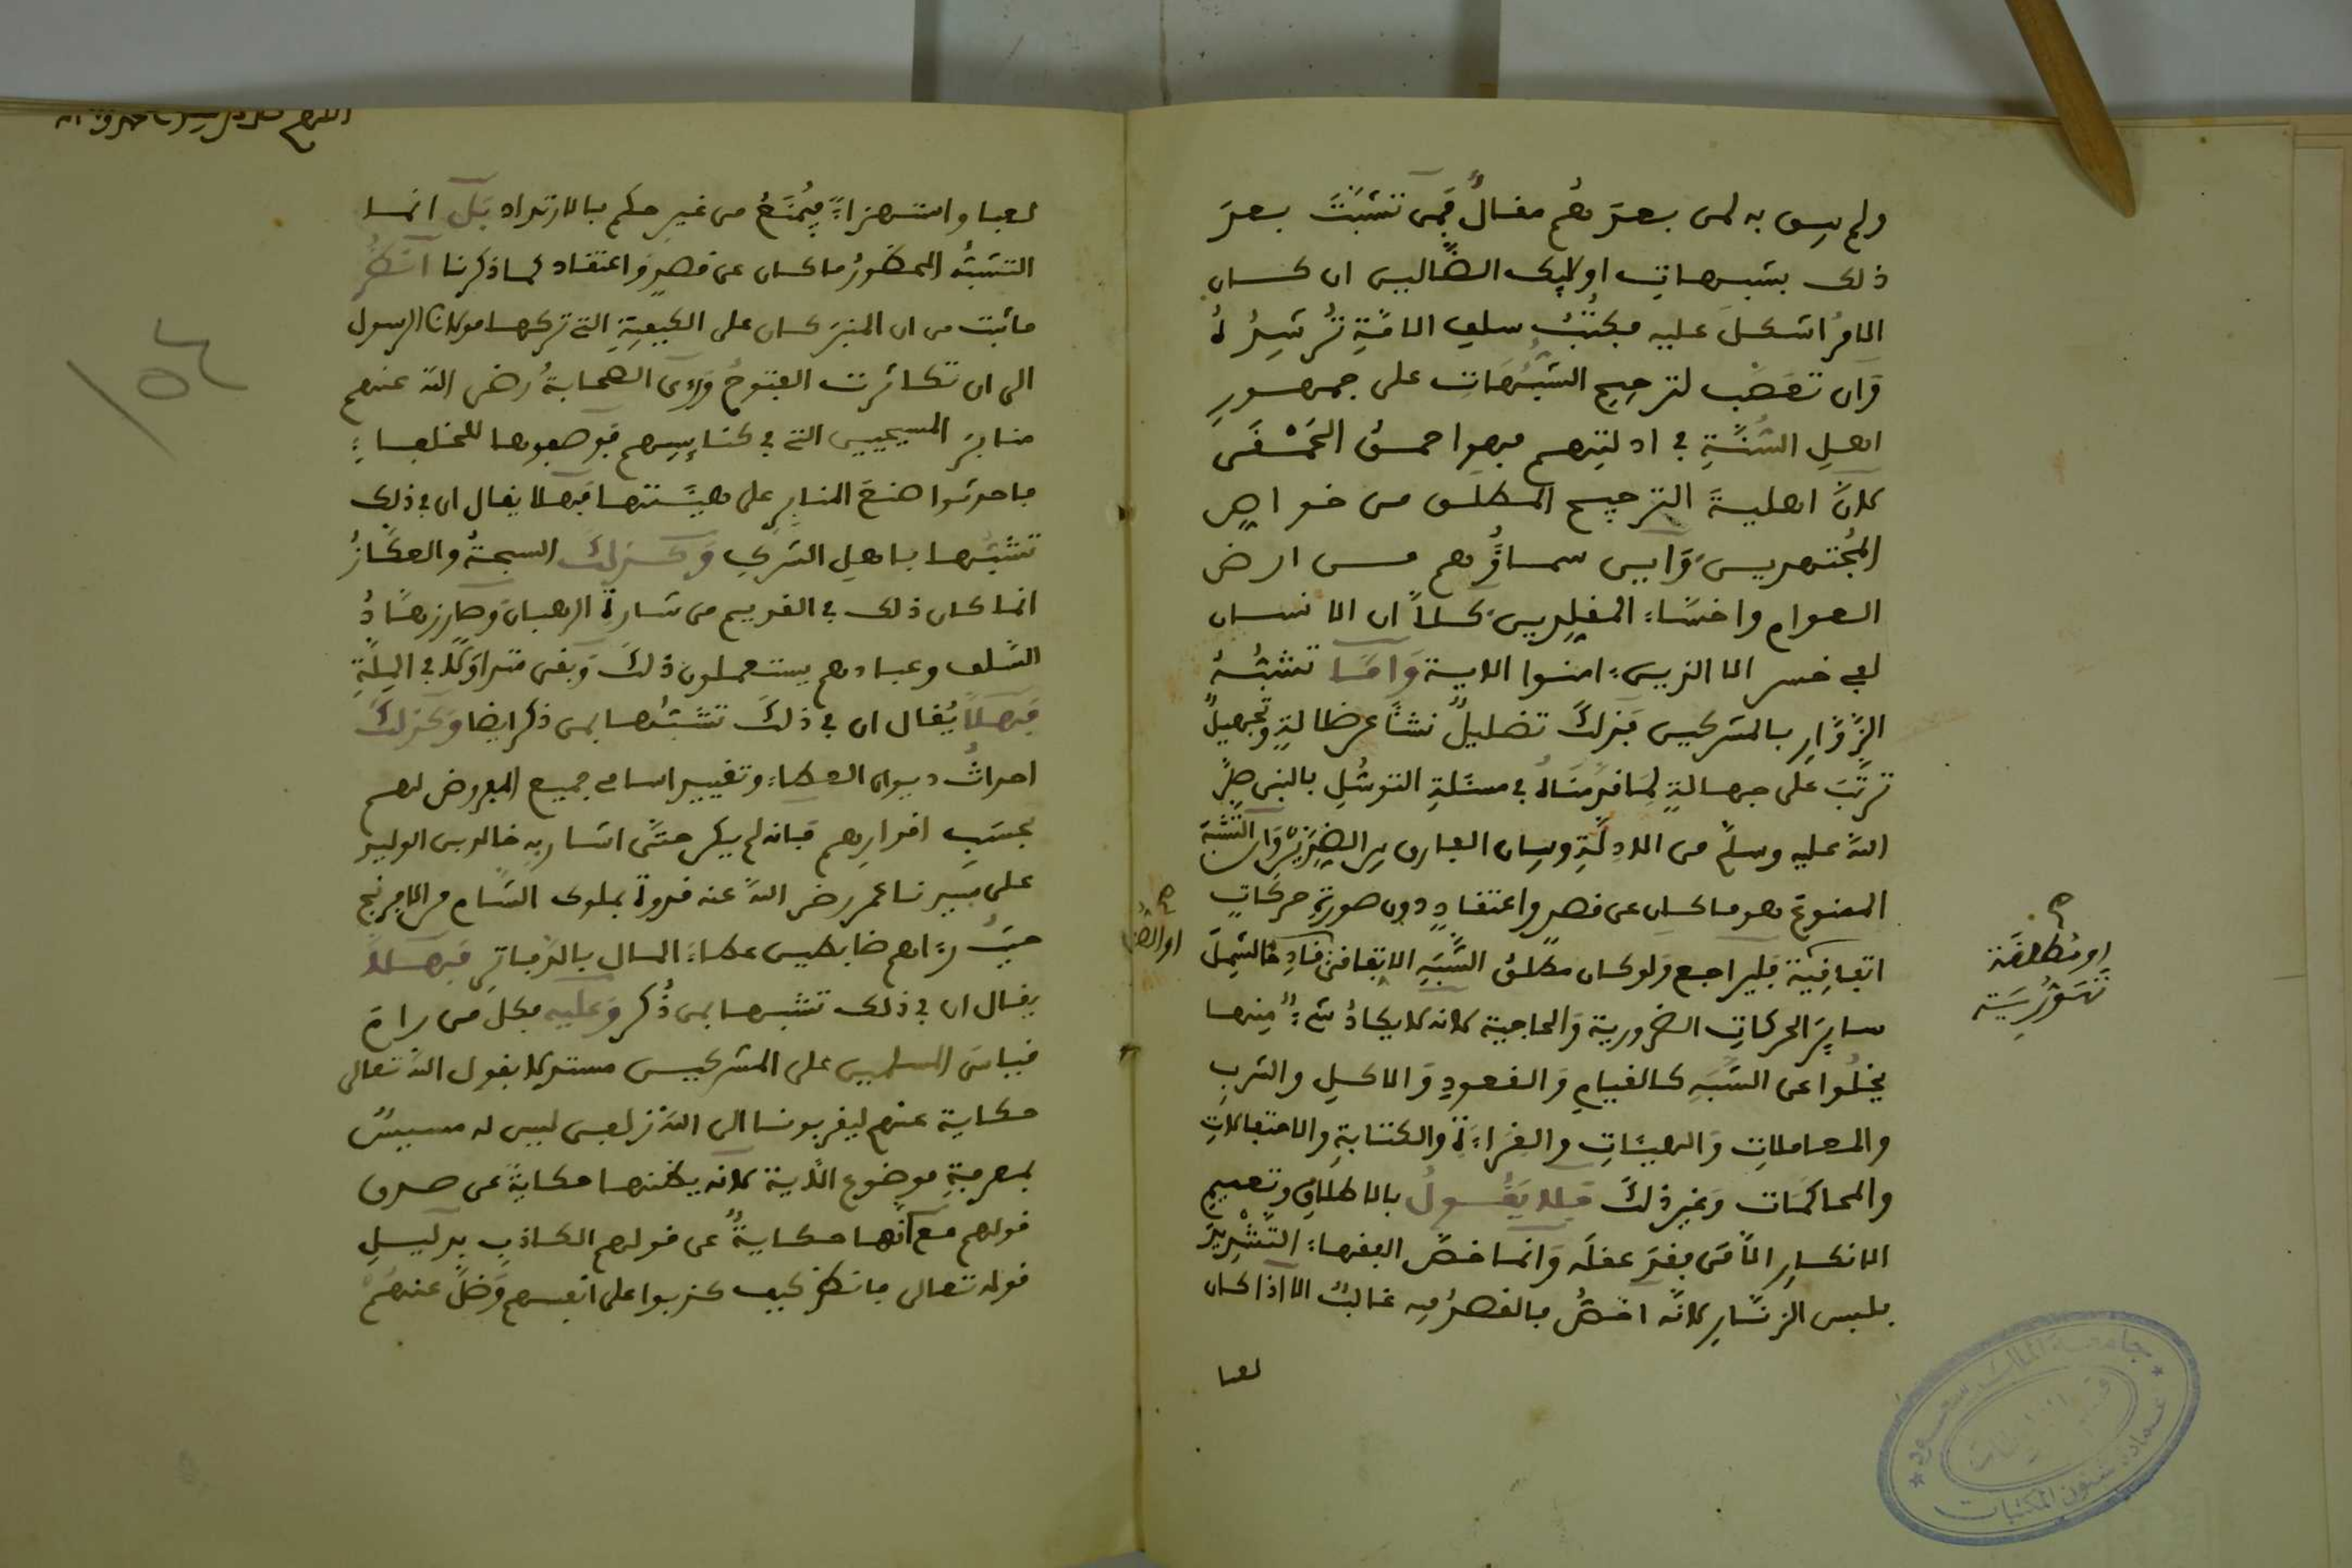 ولم يبق به لمن بعدهم مقالٌ فمن تشبث بعد
ذلك بشبهات اولايك الضالين ان كان
الامر اشكل عليه فكتب سلف الامة ترشده
وان تعصب لترجيح الشبهات على جمهور
اهل السنة في ادلتهم فهو احمق الحمقى
لان اهلية الترجيح المطلق من خواص
المجتهدين واين سماؤهم من ارض
العوام واخساء المقلدين كلا ان الانسان
لفي خسر الا الذين ءامنوا الاية واما تشبه
الزوار بالمشركين فذلك تضليل نشأ عن ضالة وتجهيل
ترتب على جهالة لما قدمناه في مسئلة التوسل بالنبي صلى
الله عليه وسلم من الادلة وبيان الفارق بين الضدين وان التشبه
الممنوع هو ما كان عن قصد واعتقاد دون صورة حركات
اتفاقية فليراجع ولو كان مطلق الشبه الاتفاقي قادحا لشمل
ساير الحركات الضرورية والحاجية لانه لا يكاد شيء منها
يخلوا عن الشبه كالقيام والقعود والاكل والشرب
والمعاملات والهيئات والقراءة والكتابة والاحتفالات
والمحاكمات وغير ذلك فلا يقول بالاطلاق وتعميم
الانكار الا من فقد عقله وانما خص الفقهاء التشديد
بلبس الزنار لانه اخص بالقصد فيه غالبا الا اذا كان
لعبا
جامعة الملك سعود
عمادة شئون المكتبات
لعبا واستهزاء فيمنع من غير حكم بالارتداد بل انما
التشبه المحظور ما كان عن قصد واعتقاد كما ذكرنا انظر
ما ثبت من ان المنبر كان على الكيفية التي تركها مولانا الرسول
الى ان تكاثرت الفتوح ورءى الصحابة رضي الله عنهم
منابر المسيحيين التي في كنايسهم فوصفوها للخلفاء
فاحدثوا صنع المنابر على هيئتها فهلا يقال ان في ذلك
تشبها باهل الشرك وكذلك السبحة والعكاز
انما كان ذلك في القديم من شارة الرهبان وصار زهاد
السلف وعبادهم يستعملون ذلك وبقي متداولا في الملة
فهلا يقال ان في ذلك تشبها بمن ذكر ايضا وكذلك
احداث ديوان العطاء وتغيير اسامي جميع المفروض لهم
بحسب اقدارهم فانه لم يكن حتى اشار به خالد بن الوليد
على سيدنا عمر رضي الله عنه قدوة بملوك الشام من الافرنج
حيث رءاهم ضابطين عطاء المال بالدفاتر فهلا
يقال ان في ذلك تشبها بمن ذكر وعليه فكل من رام
قياس المسلمين على المشركين مستدلا بقول الله تعالى
حكاية عنهم ليقربونا الى الله زلفى ليس له مسيس
بمعرفة موضوع الاية لانه يظنها حكاية عن صدق
قولهم مع انها حكاية عن قولهم الكاذب بدليل
قوله تعالى فانظر كيف كذبوا على انفسهم وضل عنهم